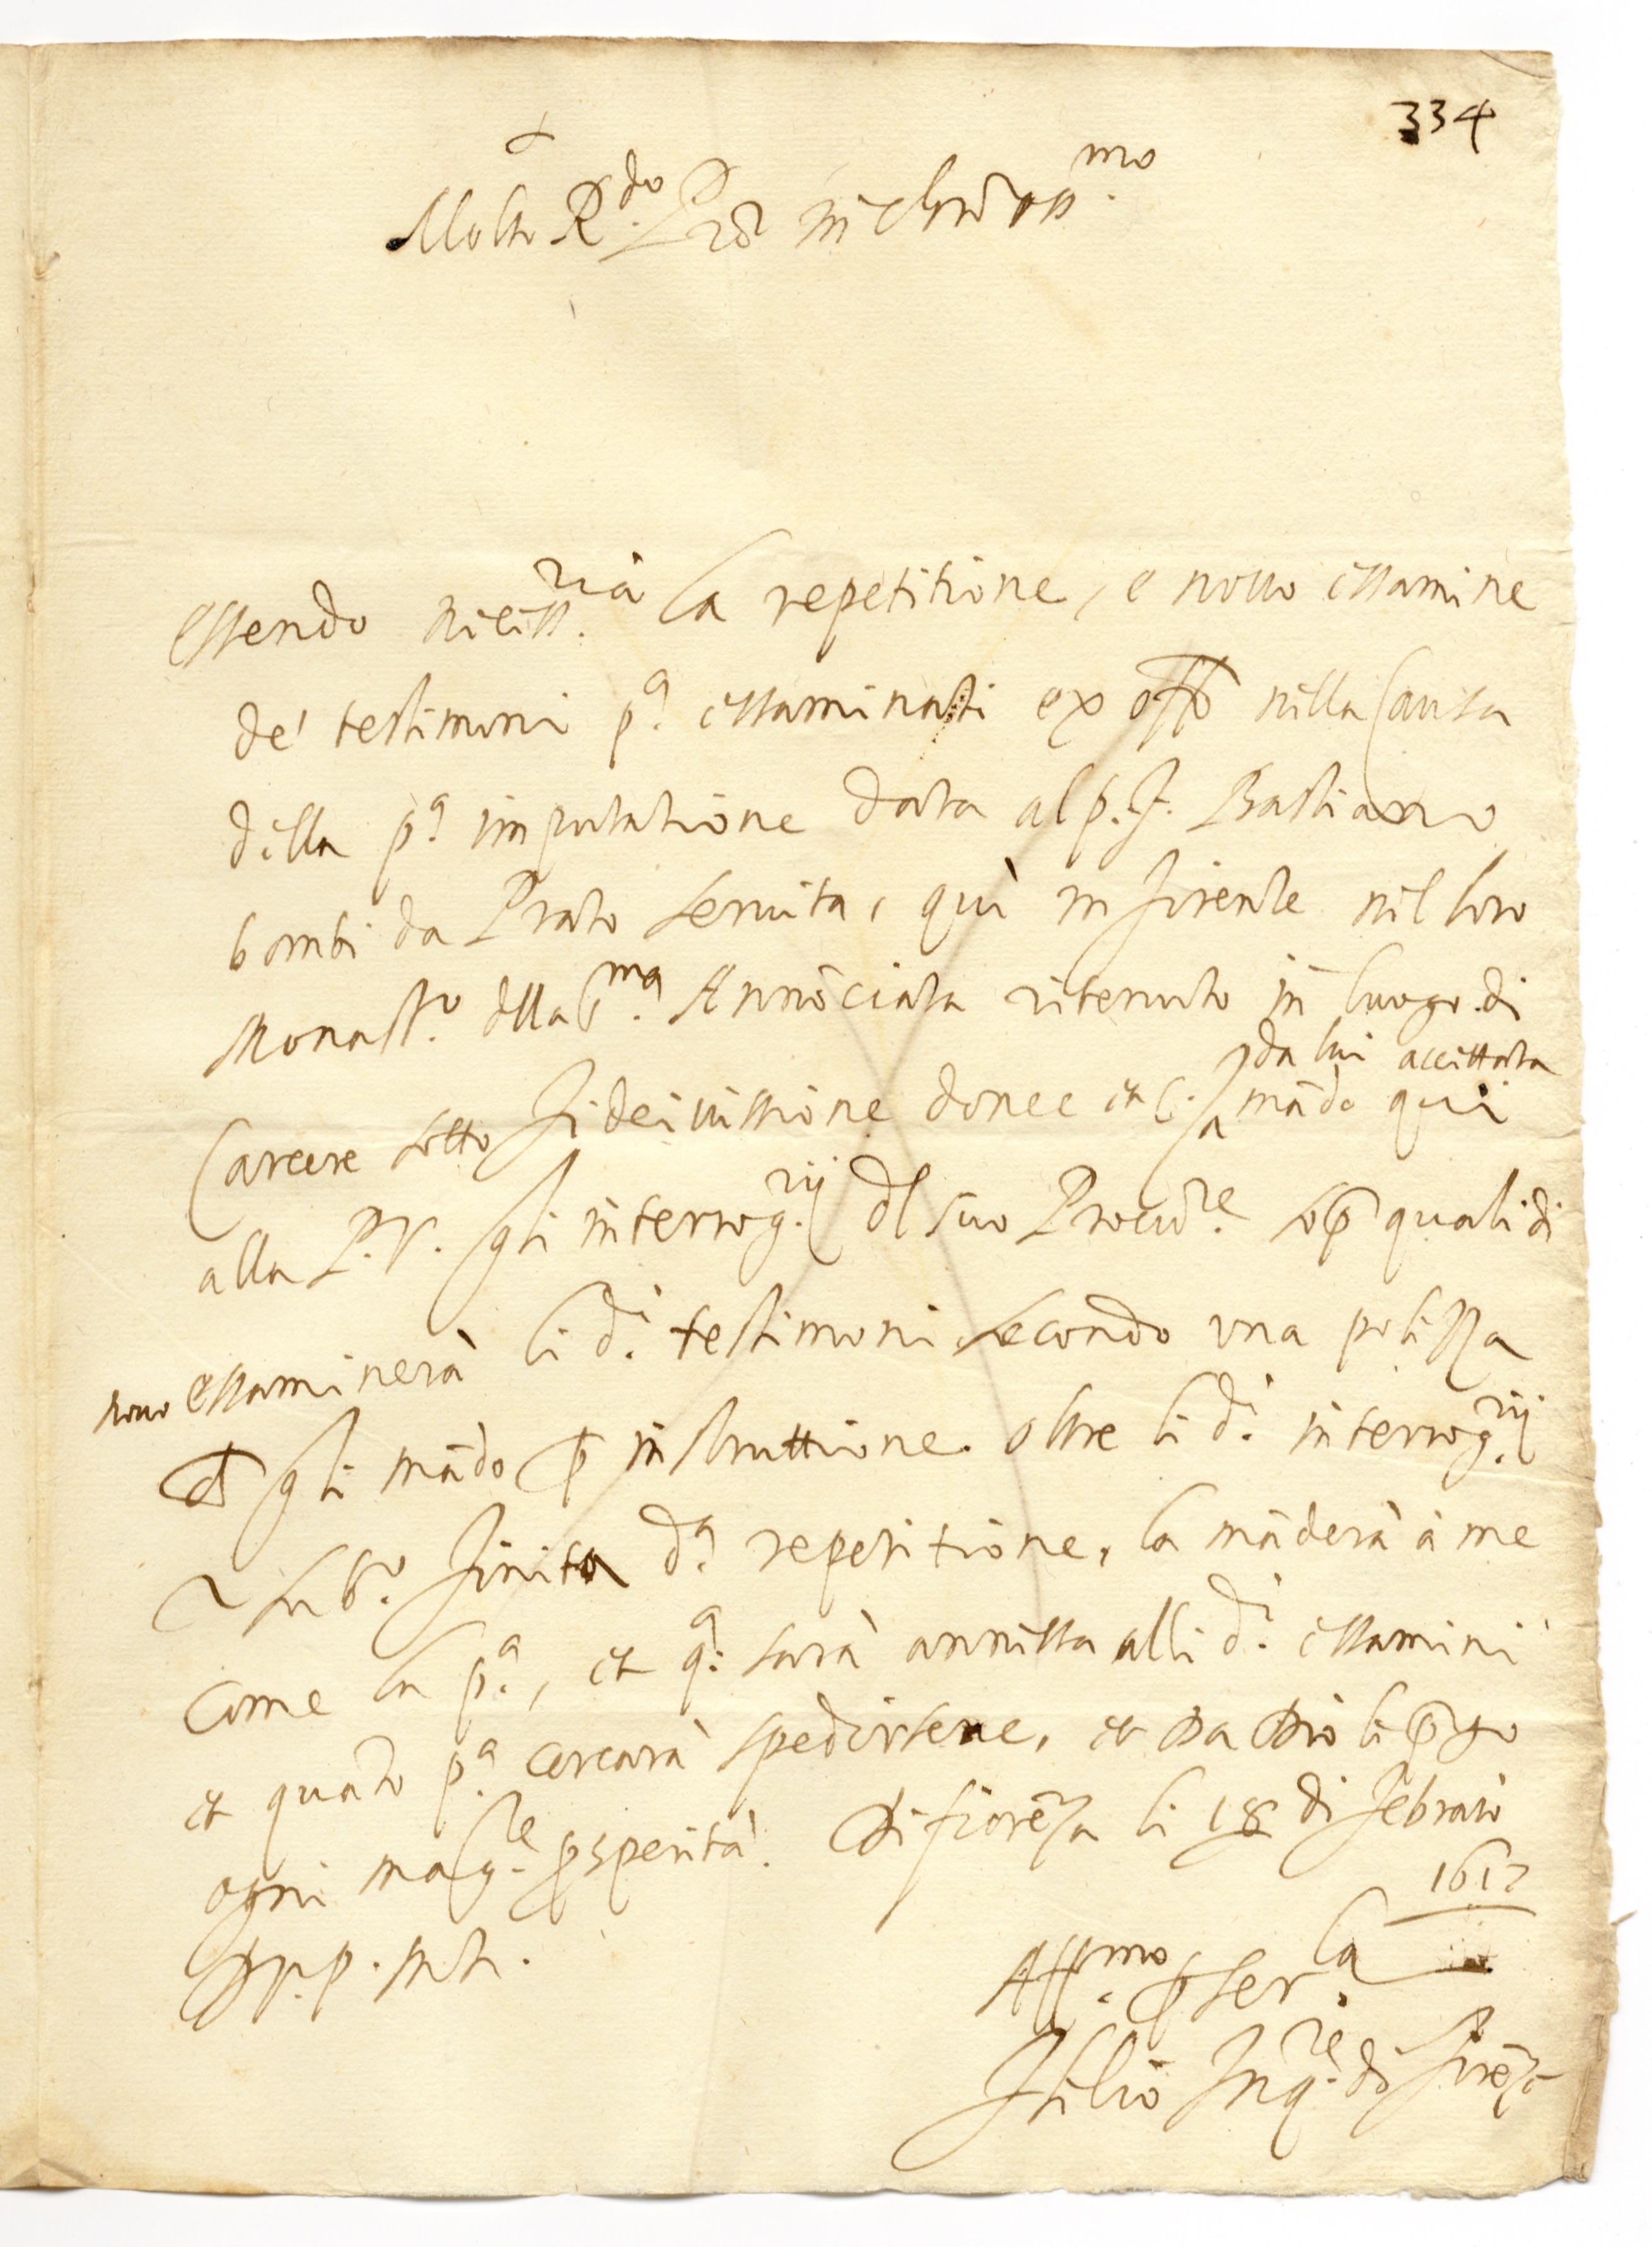 334
Molto R.do P.re in Chro oss.mo
Essendo necess.ria la repetitione, e nouo essamine
de' testimoni p.a essaminati ex offo nella Causa
della p.a imputatione data al p. f. Bastiano
bombi da Prato seruita, quì in firenze nel loro
Monast.o della S.ma Annōciata ritenuto in luogo di
Carcere sotto fideiussione donec etc. da lui accettata
mādo qui
alla P. V. gli interrog.rij del suo Procu.re sop quali di
nouo essaminerà li d.i testimoni secondo una polizza
ch gli mādo p instruttione oltre li d.i interrog.rij
e sub.o finita d.a repetitione, la māderà à me
come la p.a, et q.a sarà annessa alli d.i essamini
et quāto p.a cercarà spedirsene, et da Dio li pgo
ogni mag.re psperità. Di fiorēza li 18 di febraio
1617
D. V. P. M. R.
Aff.mo p ser.la
f. Lelio Inq.re di firēze